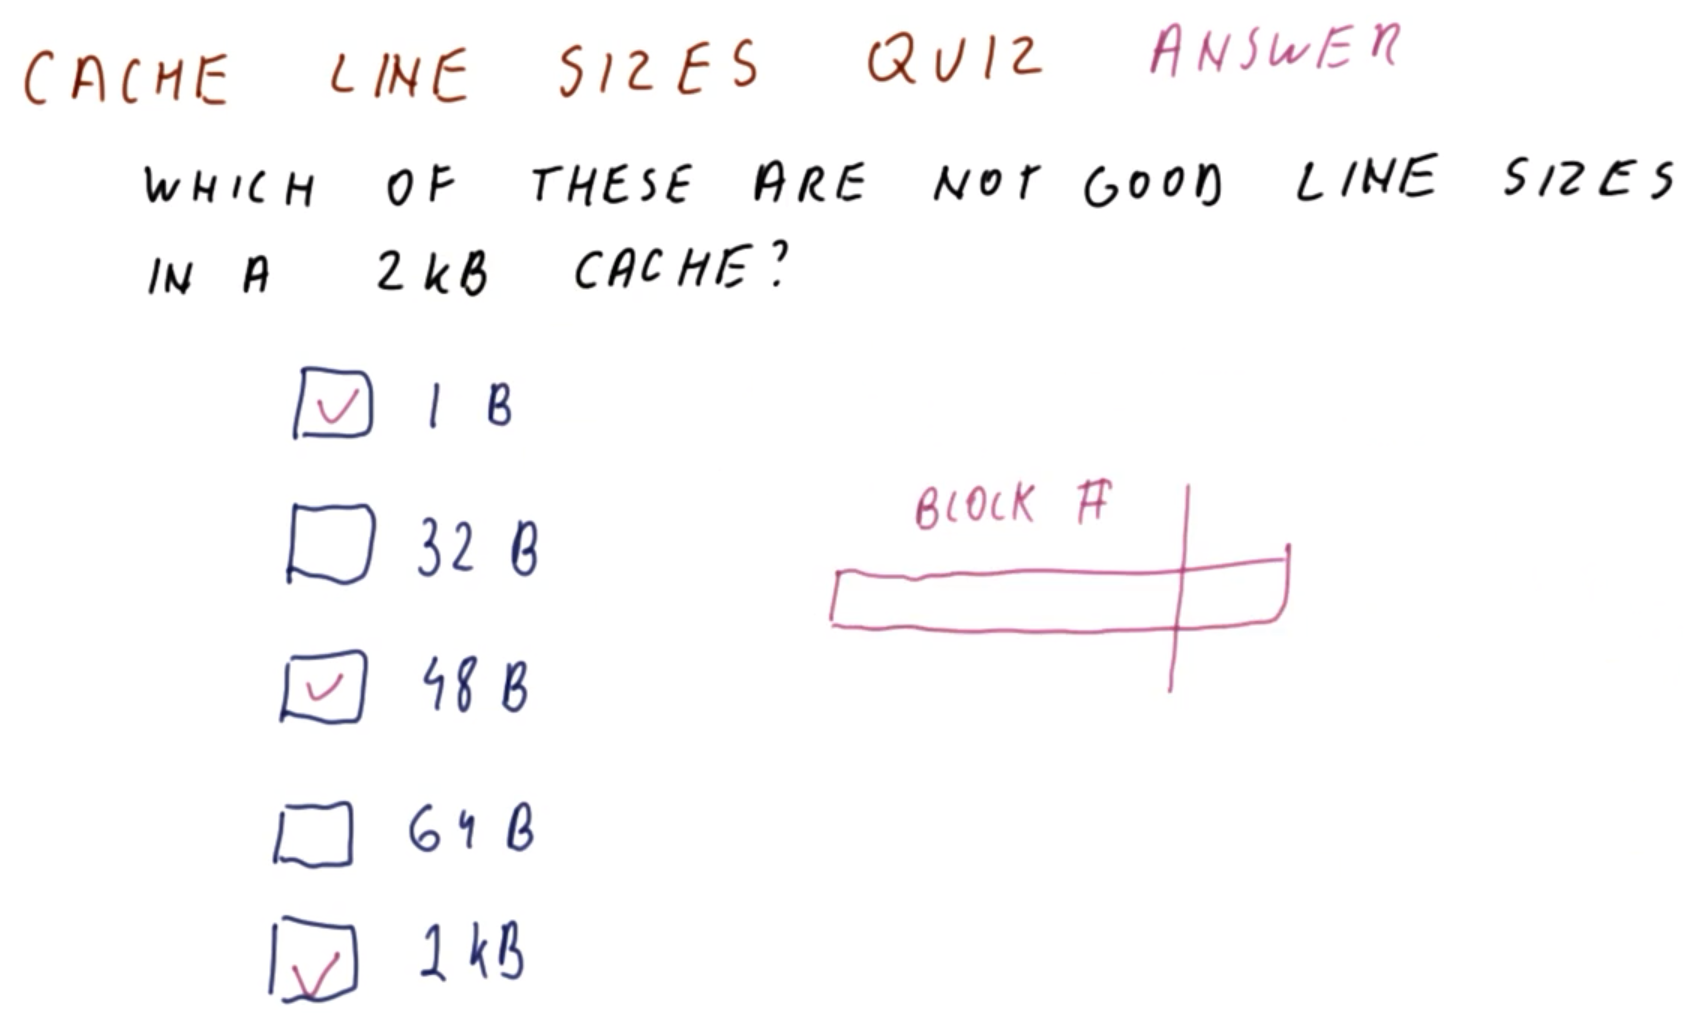 CACHE LINE SIZES QUIZ ANSWER
WHICH OF THESE ARE NOT GOOD LINE SIZES
IN A 2 kB CACHE?
1 B
32 B
BLOCK #
48 B
64 B
1 kB